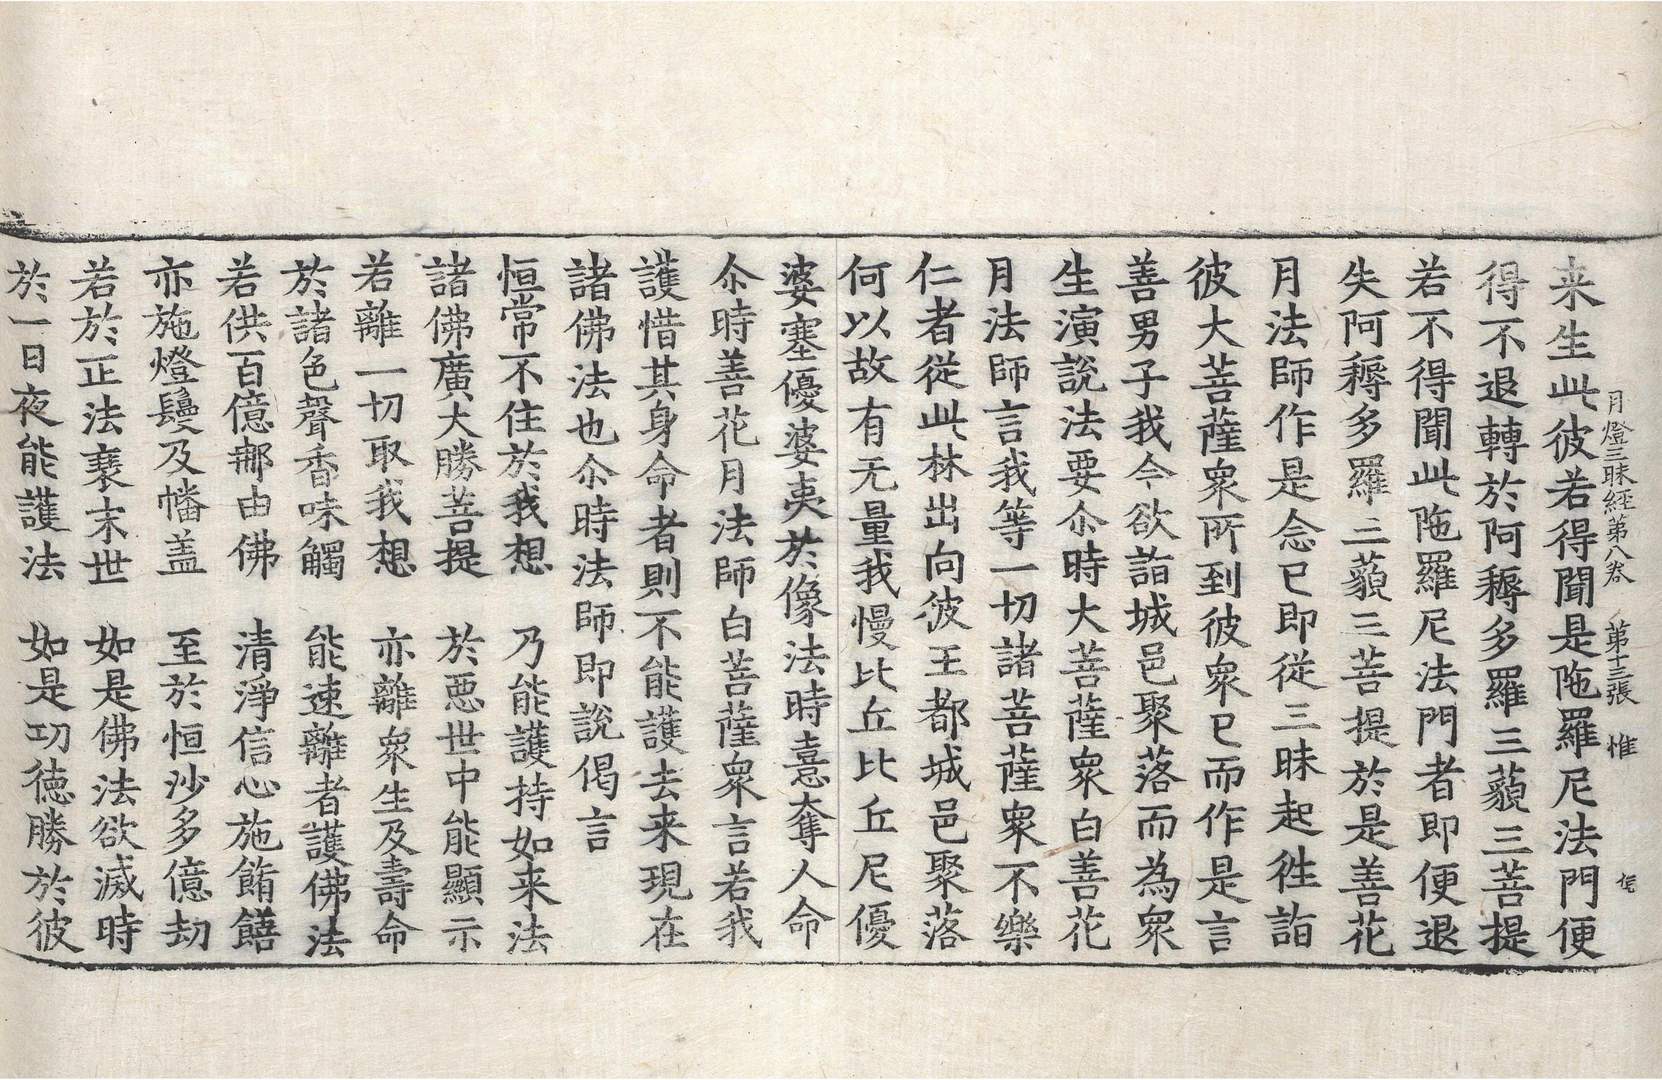 月燈三昧經第八卷 第十三張 惟
来生此彼若得聞是陁羅尼法門便
得不退轉於阿耨多羅三藐三菩提
若不得聞此陁羅尼法門者即便退
失阿耨多羅三藐三菩提於是善花
月法師作是念已即從三昧起徃詣
彼大菩薩衆所到彼衆已而作是言
善男子我今欲詣城邑聚落而為衆
生演説法要尒時大菩薩衆白善花
月法師言我等一切諸菩薩衆不樂
仁者從此林出向彼王都城邑聚落
何以故有无量我慢比丘比丘尼優
婆塞優婆夷於像法時憙奪人命
尒時善花月法師白菩薩衆言若我
護惜其身命者則不能護去来現在
諸佛法也尒時法師即説偈言
恒常不住於我想 乃能護持如来法
諸佛廣大勝菩提 於惡世中能顯示
若離一切取我想 亦離衆生及壽命
於諸色聲香味觸 能速離者護佛法
若供百億那由佛 清淨信心施餚饍
亦施燈鬘及幡盖 至於恒沙多億劫
若於正法衰末世 如是佛法欲滅時
於一日夜能護法 如是功德勝於彼